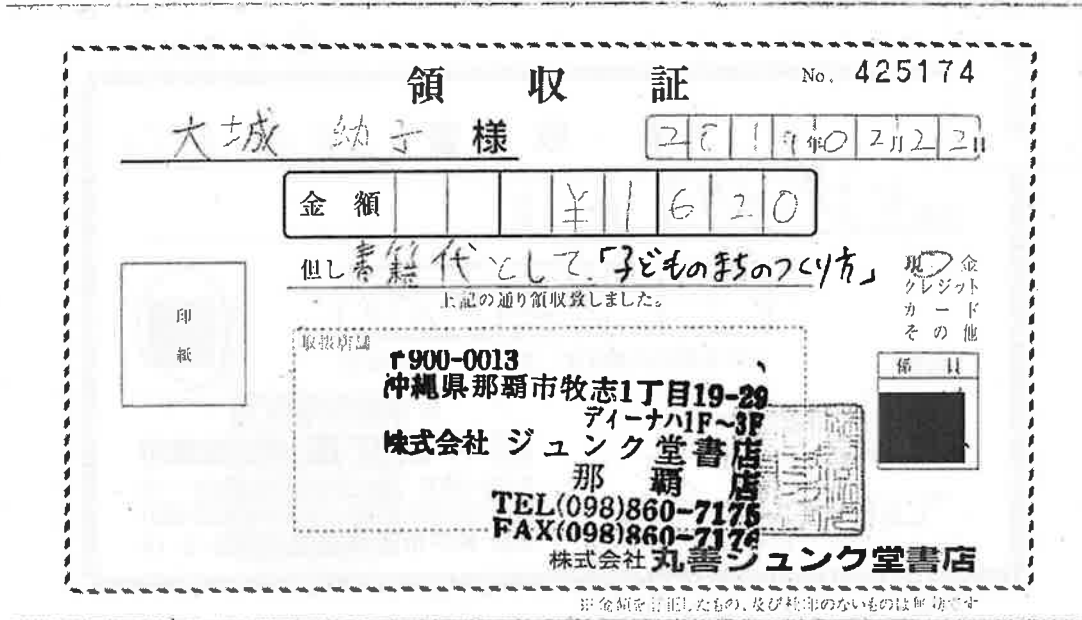 領収証
No. 425174
大城 幼子 様
2019年02月22日
金額 ¥1620
但し 書籍代として.「子どものまちのつくり方」
上記の通り領収致しました。
現金
クレジット
カード
その他
印紙
取扱店舗
係員
〒900-0013
沖縄県那覇市牧志1丁目19-29
ディーナハ1F~3F
株式会社 ジュンク堂書店
那覇店
TEL(098)860-7175
FAX(098)860-7176
株式会社丸善ジュンク堂書店
※金額を訂正したもの、及び社印のないものは無効です